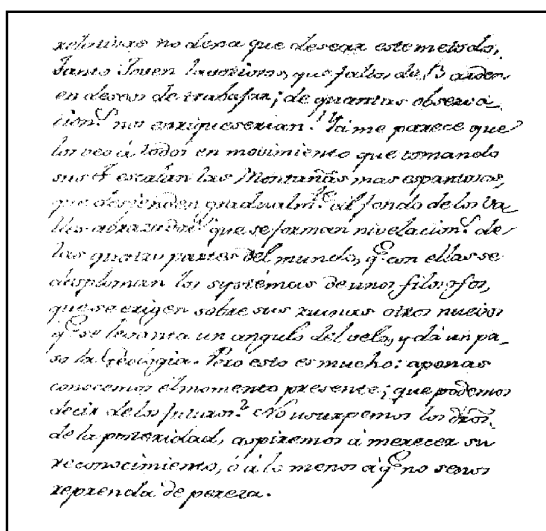 relativas no dexa que desear este metodo.
Tanto Joven laborioso, que faltos de B arden
en deseos de trabajar; de quantas observa
cion.s nos enriqueserian! Ya me parece que
los veo á todos en movimiento que tomando
sus B escalan las Montañas mas espantosas,
que desienden gradualm.te al fondo de los va
lles abrazados que se forman nivelacion.s de
las quatro partes del mundo, q.e con ellas se
desploman los systémas de unos filosofos,
que se erigen sobre sus ruinas otros nuevos
q.e se levanta un angulo del velo, y dá un pa-
so la Geologia. Pero esto es mucho: apenas
conocemos el momento presente; que podemos
decir de los futuros? No usurpemos los dros.
de la posteridad, aspiremos á merecer su
reconocimiento, ó á lo menos á q.e no se nos
reprenda de pereza.